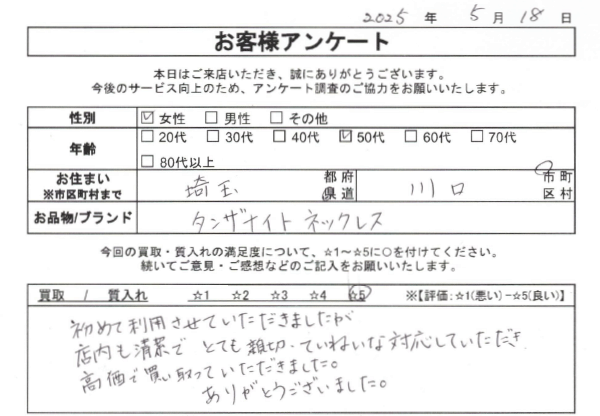 2025 年 5 月 18 日
お客様アンケート
本日はご来店いただき、誠にありがとうございます。
今後のサービス向上のため、アンケート調査のご協力をお願いいたします。
性別 ☑ 女性 □ 男性 □ その他
年齢 □ 20代 □ 30代 □ 40代 ☑ 50代 □ 60代 □ 70代
□ 80代以上
お住まい ※市区町村まで 埼玉 都 府 県 道 川口 市 町 区 村
お品物/ブランド タンザナイト ネックレス
今回の買取・質入れの満足度について、☆1～☆5に○を付けてください。
続いてご意見・ご感想などのご記入をお願いいたします。
買取 / 質入れ ☆1 ☆2 ☆3 ☆4 ☆5 ※【評価:☆1(悪い)－☆5(良い)】
初めて利用させていただきましたが
店内も清潔で とても親切・ていねいな対応していただき
高価で買い取っていただきました。
ありがとうございました。